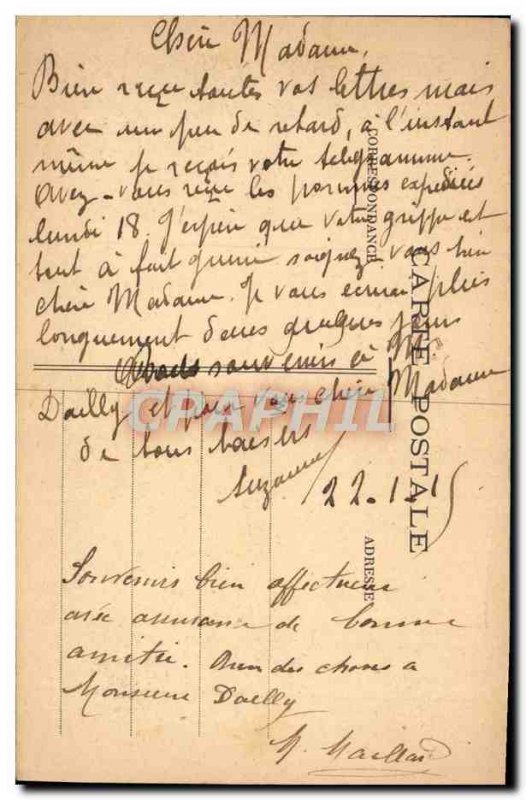 Chère Madame,
Bien reçu toutes vos lettres mais
avec un peu de retard, à l'instant
même je reçois votre télégramme.
Avez-vous reçu les pommes expédiées
lundi 18. J'espère que votre grippe est
tout à fait guérie soignez-vous bien
chère Madame. Je vous écrirai plus
longuement dans quelques jours
souvenirs à Mr
Dailly et pour vous chère Madame
de bons baisers
Suzanne
22-1-15
Souvenirs bien affectueux
avec assurance de bonne
amitié. Bien des choses à
Monsieur Dailly
M. Maillard
CORRESPONDANCE
CARTE POSTALE
ADRESSE
CPAPHIL